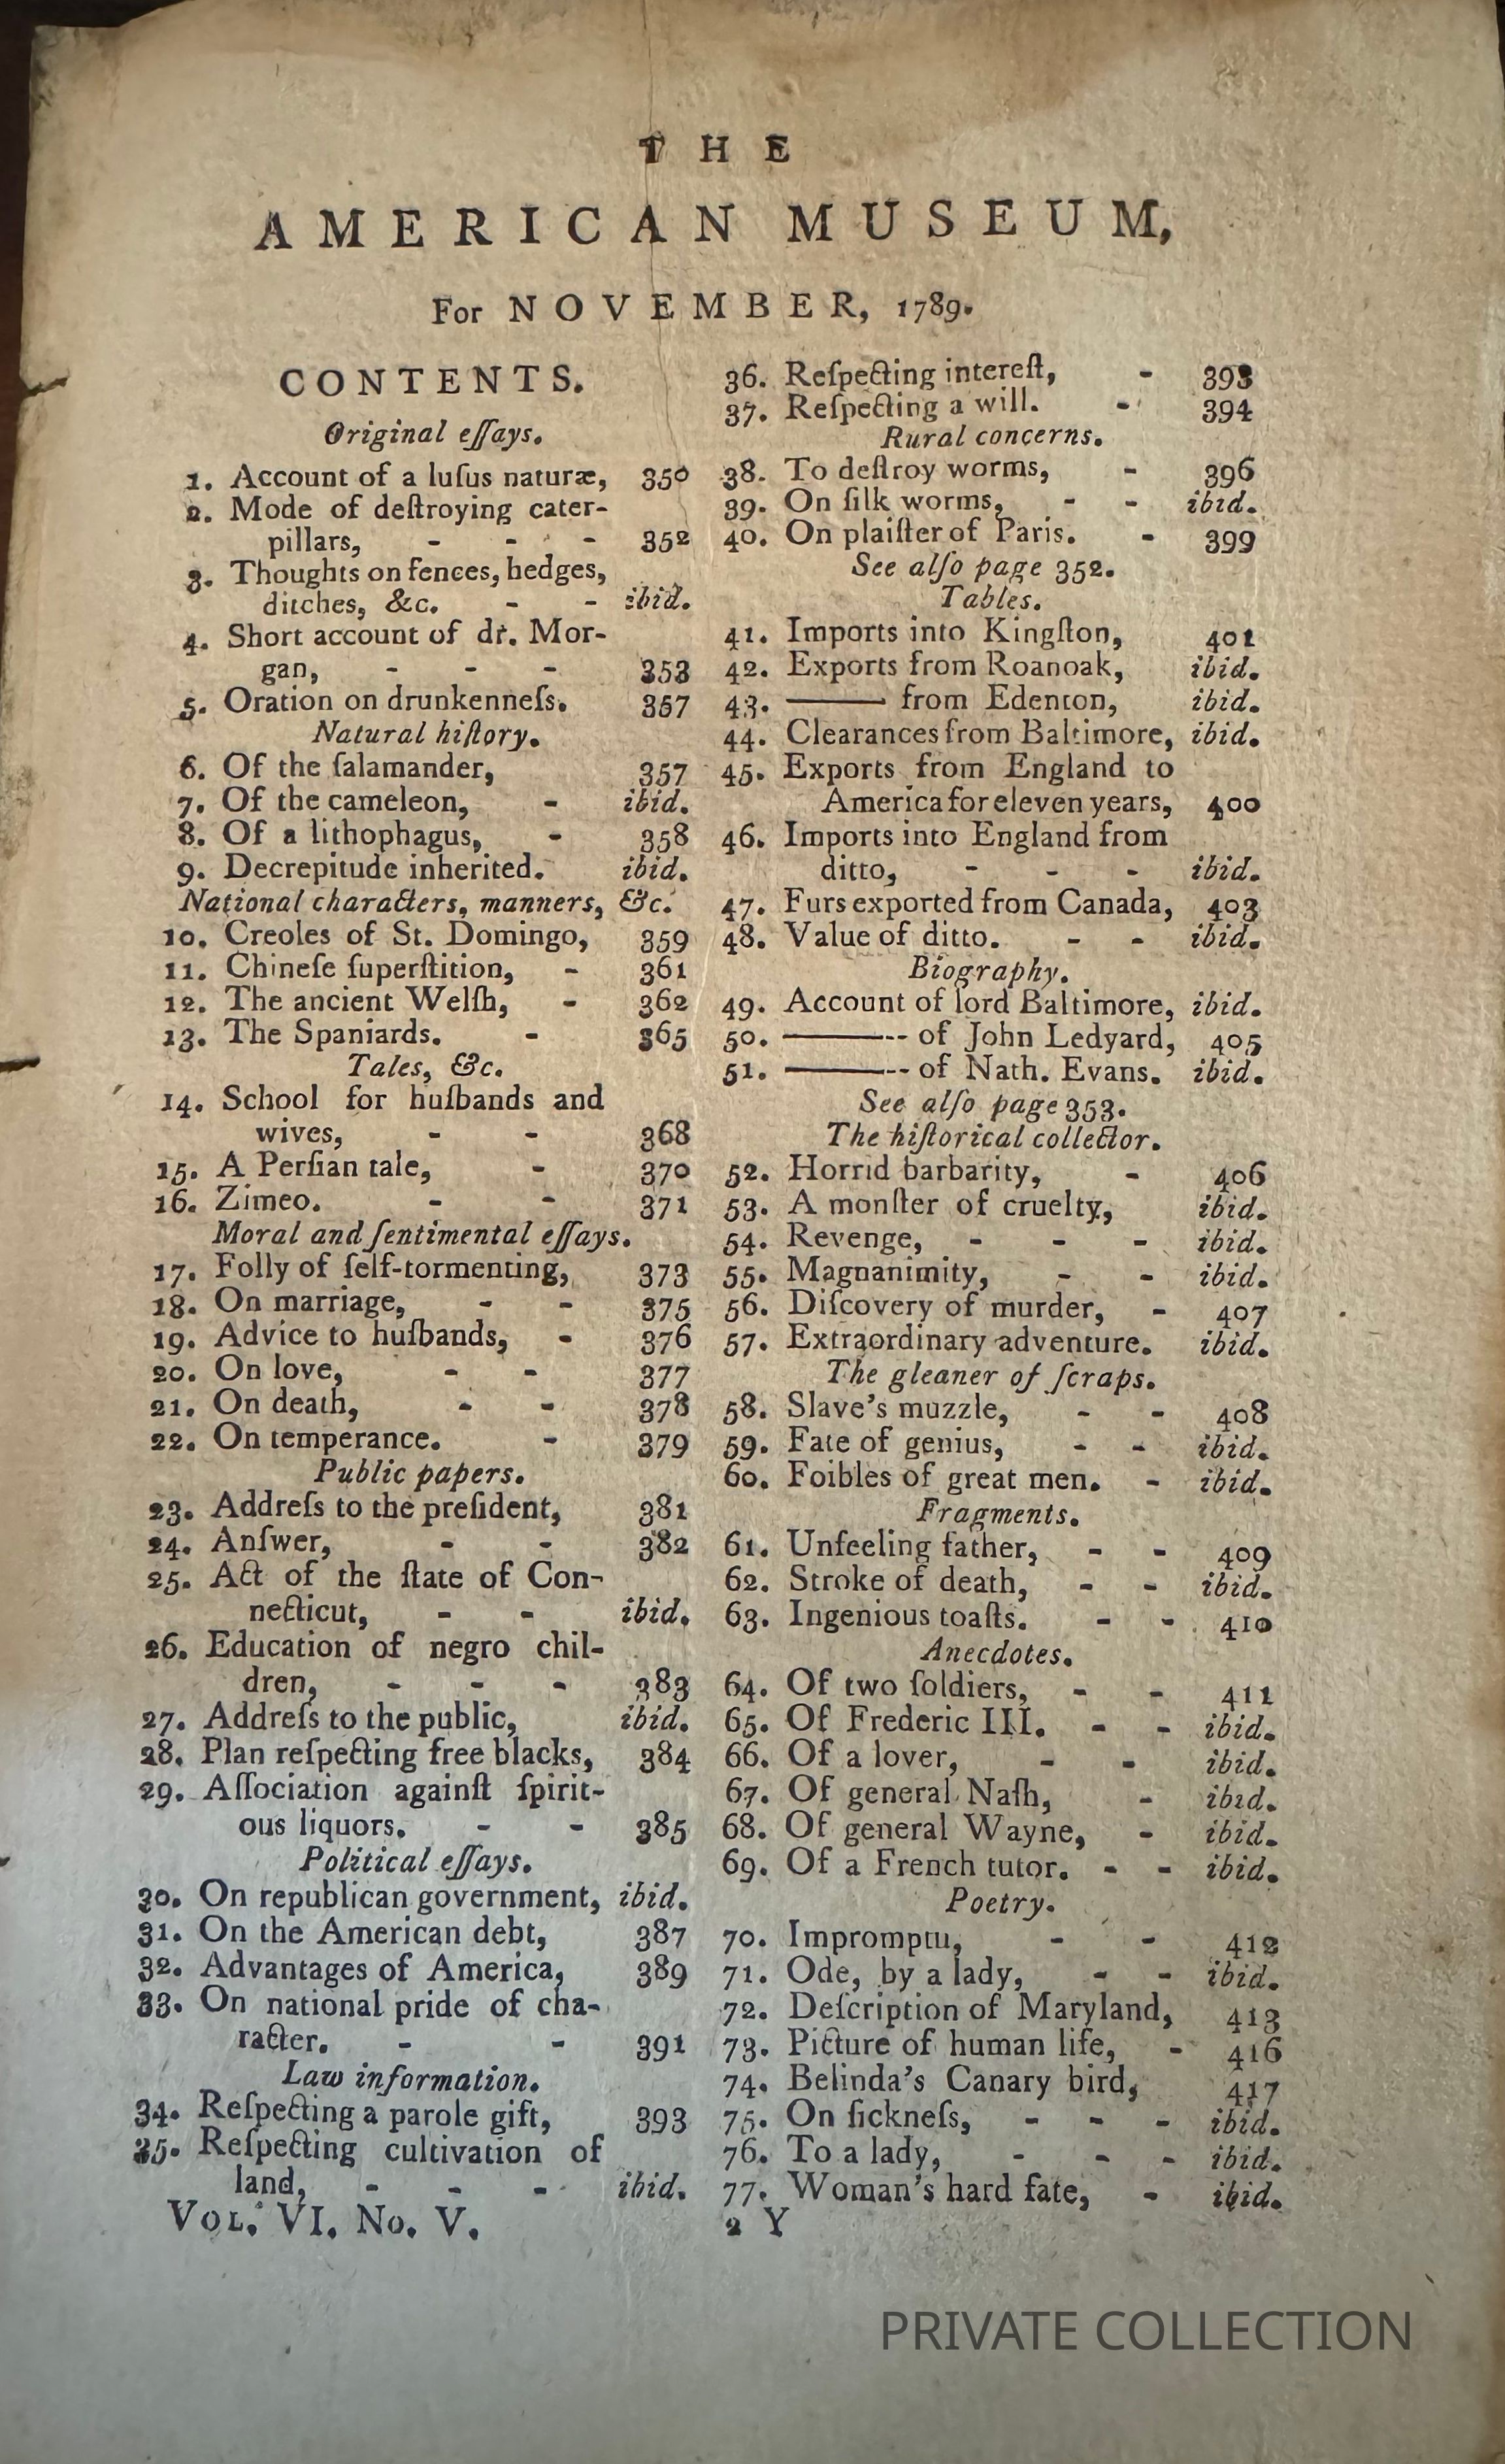 THE
AMERICAN MUSEUM,
For NOVEMBER, 1789.
CONTENTS.
Original eſſays.
1. Account of a luſus naturæ, 350
2. Mode of deſtroying cater-
pillars, - - - 352
3. Thoughts on fences, hedges,
ditches, &c. - - ibid.
4. Short account of dr. Mor-
gan, - - - 353
5. Oration on drunkenneſs. 357
Natural hiſtory.
6. Of the ſalamander, 357
7. Of the cameleon, - ibid.
8. Of a lithophagus, - 358
9. Decrepitude inherited. ibid.
National characters, manners, &c.
10. Creoles of St. Domingo, 359
11. Chineſe ſuperſtition, - 361
12. The ancient Welſh, - 362
13. The Spaniards. - 365
Tales, &c.
14. School for huſbands and
wives, - - 368
15. A Perſian tale, - 370
16. Zimeo. - - 371
Moral and ſentimental eſſays.
17. Folly of ſelf-tormenting, 373
18. On marriage, - - 375
19. Advice to huſbands, - 376
20. On love, - - 377
21. On death, - - 378
22. On temperance. - 379
Public papers.
23. Addreſs to the preſident, 381
24. Anſwer, - - 382
25. Act of the ſtate of Con-
necticut, - - ibid.
26. Education of negro chil-
dren, - - - 383
27. Addreſs to the public, ibid.
28. Plan reſpecting free blacks, 384
29. Aſſociation againſt ſpirit-
ous liquors. - - 385
Political eſſays.
30. On republican government, ibid.
31. On the American debt, 387
32. Advantages of America, 389
33. On national pride of cha-
racter. - - 391
Law information.
34. Reſpecting a parole gift, 393
35. Reſpecting cultivation of
land, - - - ibid.
VOL. VI. No. V.
36. Reſpecting intereſt, - 393
37. Reſpecting a will. - 394
Rural concerns.
38. To deſtroy worms, - 396
39. On ſilk worms, - - ibid.
40. On plaiſter of Paris. - 399
See alſo page 352.
Tables.
41. Imports into Kingſton, 401
42. Exports from Roanoak, ibid.
43. ——— from Edenton, ibid.
44. Clearances from Baltimore, ibid.
45. Exports from England to
America for eleven years, 400
46. Imports into England from
ditto, - - - ibid.
47. Furs exported from Canada, 403
48. Value of ditto. - - ibid.
Biography.
49. Account of lord Baltimore, ibid.
50. ———-- of John Ledyard, 405
51. ———-- of Nath. Evans. ibid.
See alſo page 353.
The hiſtorical collector.
52. Horrid barbarity, - 406
53. A monſter of cruelty, ibid.
54. Revenge, - - - ibid.
55. Magnanimity, - - ibid.
56. Diſcovery of murder, - 407
57. Extraordinary adventure. ibid.
The gleaner of ſcraps.
58. Slave's muzzle, - - 408
59. Fate of genius, - - ibid.
60. Foibles of great men. - ibid.
Fragments.
61. Unfeeling father, - - 409
62. Stroke of death, - - ibid.
63. Ingenious toaſts. - - 410
Anecdotes.
64. Of two ſoldiers, - - 411
65. Of Frederic III. - - ibid.
66. Of a lover, - - ibid.
67. Of general Naſh, - ibid.
68. Of general Wayne, - ibid.
69. Of a French tutor. - - ibid.
Poetry.
70. Impromptu, - - 412
71. Ode, by a lady, - - ibid.
72. Deſcription of Maryland, 413
73. Picture of human life, - 416
74. Belinda's Canary bird, 417
75. On ſickneſs, - - - ibid.
76. To a lady, - - - ibid.
77. Woman's hard fate, - ibid.
2 Y
PRIVATE COLLECTION